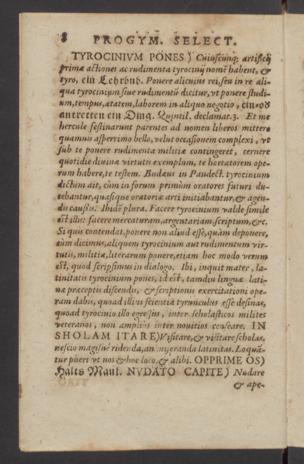 8 PROGYM. SELECT.
TYROCINIVM PONES) Cuiuscunq; artificij
primæ actiones ac rudimenta tyrocinij nomē habent, &
tyro, ein Lehrbub. Ponere alicuius rei, seu in re ali-
qua tyrocinium siue rudimentū dicitur, vt ponere studi-
um, tempus, ætatem, laborem in aliquo negotio,
antretten ein Ding. Quintil. declamat. 3. Et me
hercule festinarunt parentes ad nomen liberos mittere
quamuis asperrimo bello, velut occasionem complexi, vt
sub te ponere rudimenta militiæ contingeret, cernere
quotidie diuinæ virtutis exemplum, te hortatorem ope-
rum habere, te testem. Budæus in Pandect. tyrocinium
dictum ait, cùm in forum primùm oratores futuri du-
cebantur, quasique oratoriæ arti initiabantur, & agen-
di causis. Ibidē plura. Facere tyrocinium valde simile
est illis: facere mercaturam, argentariam, scripturam, &c.
Si quis contendat, ponere non aliud esse, quàm deponere,
cùm dicimus, aliquem tyrocinium aut rudimentum vir-
tutis, militiæ, literarum ponere, etiam hoc modo verum
est, quod scripsimus in dialogo. Ibi, inquit mater, la-
tinitatis tyrocinium pones, id est, tamdiu linguæ lati-
næ præceptis discendis, & scriptionis exercitationi ope-
ram dabis, quoad illius scientiæ tyrunculus esse desinas,
quoad tyrocinio illo egressus, inter scholasticos milites
veteranos, non amplius inter nouitios censeare. IN
SHOLAM ITARE) Visitare, & visitare scholas,
nescio magisne ridenda, an miseranda latinitas. Loquū-
tur pueri vt nos & hoc loco, & alibi. OPPRIME OS)
Halts Maul. NVDATO CAPITE) Nudare
& ape-